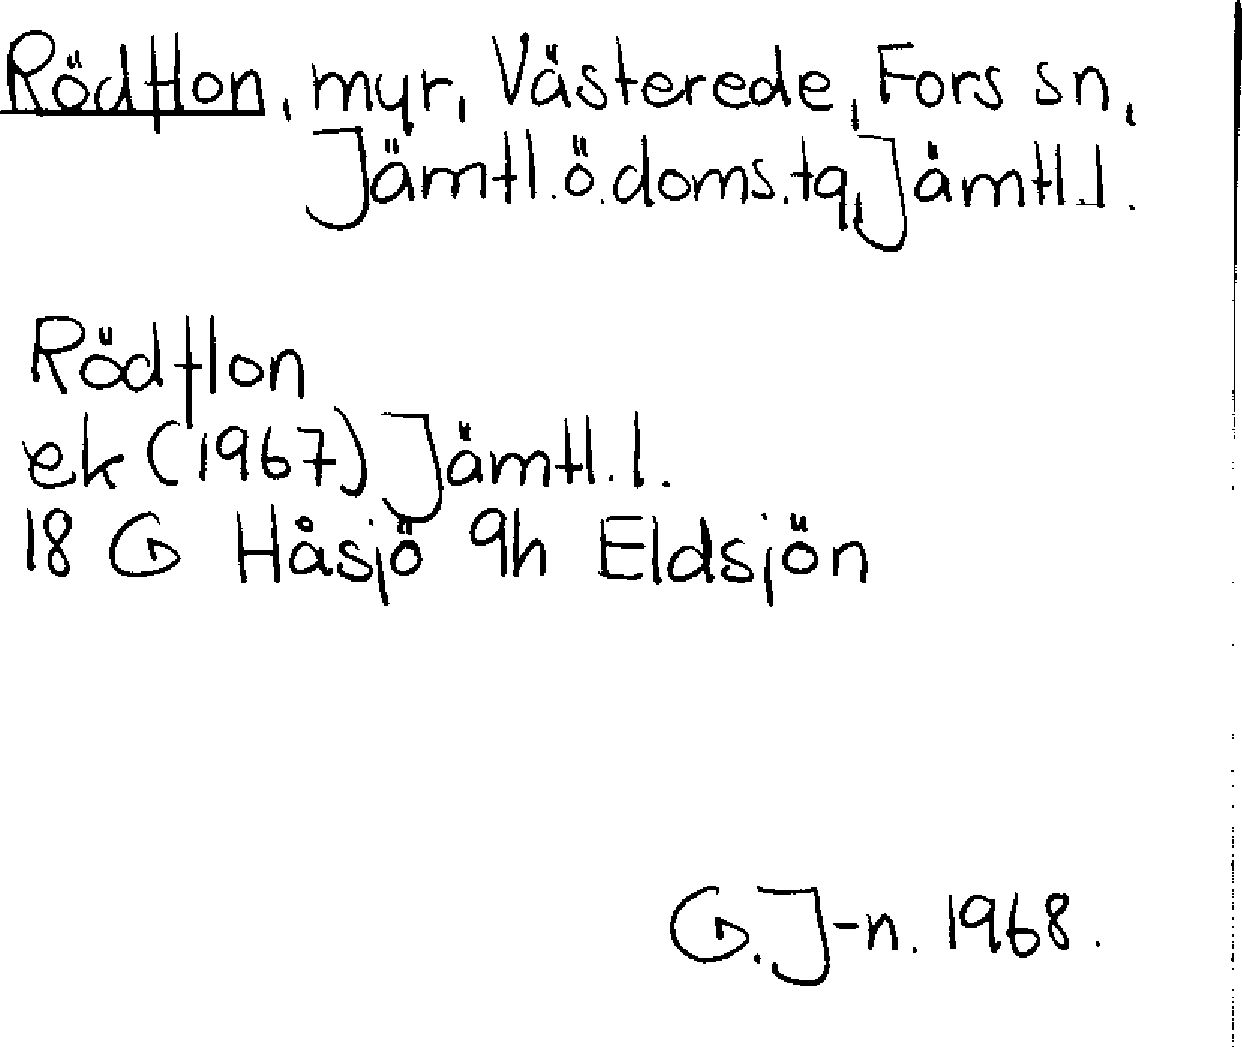 Rödflon, myr, Västerede, Fors sn,
Jämtl.ö.doms.tg, Jämtl.l.
Rödflon
ek (1967) Jämtl.l.
18 G Håsjö 9h Eldsjön
G.J-n. 1968.